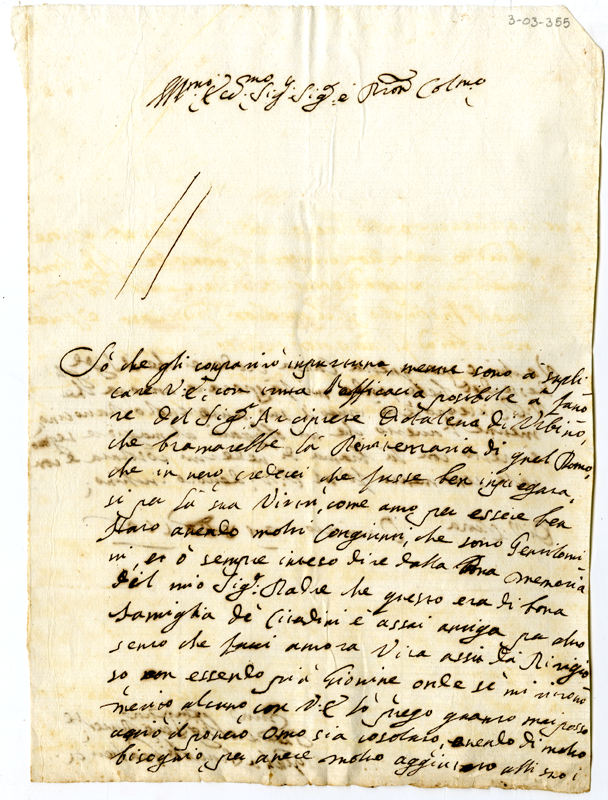 3-03-355
Ill.mo Ecc.mo Sig.r Sig.r e Pron Colmo
Sò che gli comparirò inportuna, mentre sono a supli
care V.E. con tutta l'efficacia posibile a favo
re del Sig.r Arciprete di Urbino,
che bramarebbe la Penitenziaria di quel Domo,
che in vero crederei che fusse ben inpiegata,
si per la sua Virtù, come anco per essere ben
nato avendo molti Congiunti, che sono Gentilomi
ni, et ò sempre inteso dire dalla bona memoria
del mio Sig.r Padre che questo era di bona
famiglia de Citadini e assai antiga per altro
sento che facci ancora Vita assai da Religio
so non essendo più Giovine onde se mi ritrovo
merito alcuno con V.E. la prego quanto mai posso
aciò il povero omo sia consolato, avendo di molto
bisogno, per avere molto aggiutato alli suoi